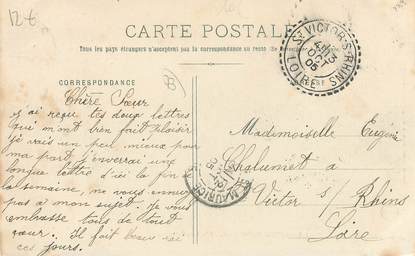 12€
CARTE POSTALE
Tous les pays étrangers n'acceptent pas la correspondance au recto
CORRESPONDANCE
Chère Sœur
j'ai reçu tes deux lettres
qui m'ont bien fait plaisir
je vais un peu mieux pour
ma part j'enverrai une
longue lettre d'ici la fin d
la semaine, ne vous ennuyez
pas à mon sujet. Je vous
embrasse tous de tout
cœur. Il fait beau ici
ces jours.
ST VICTOR-S-RHINS
OCT
05
LOIRE
Mademoiselle Eugénie
Chalumet à
St Victor s/ Rhins
Loire